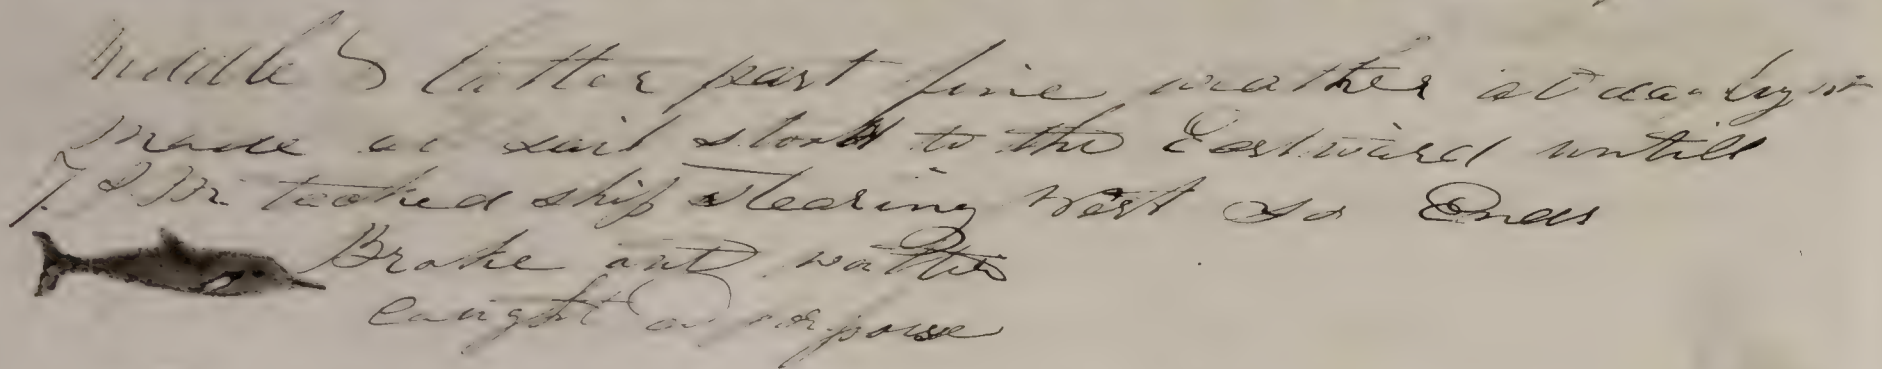 Middle & latter part fine weather at daylight
made all sail stood to the Eastward untill
7 P.M. tacked ship stearing West So Ends
Broke out watter
caught a porpouse